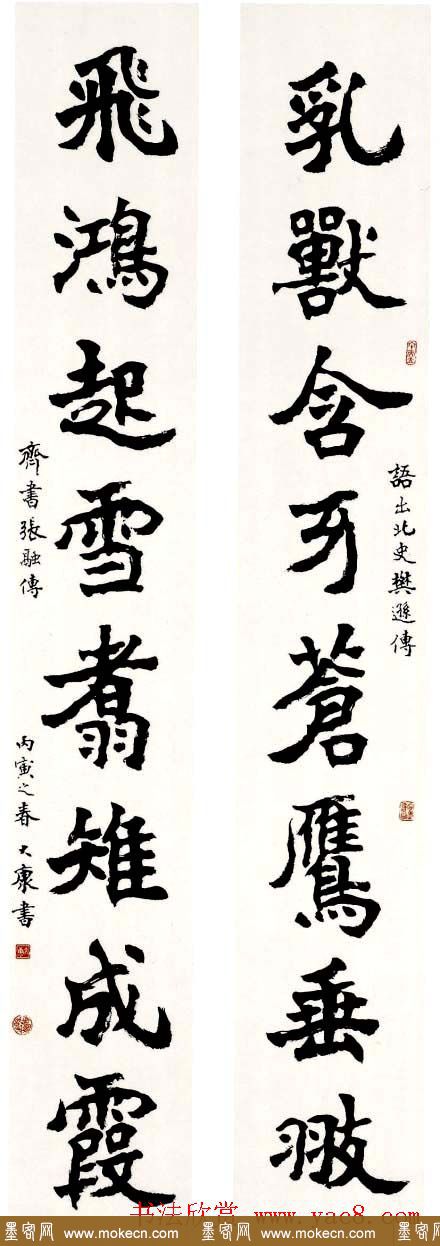 乳獸含牙蒼鷹垂翄
語出北史樊遜傳
飛鴻起雪翥雉成霞
齊書張融傳
丙寅之春大康書
书法欣赏 www.yac8.com
墨客网 www.mokecn.com 墨客网 www.mokecn.com 墨客网